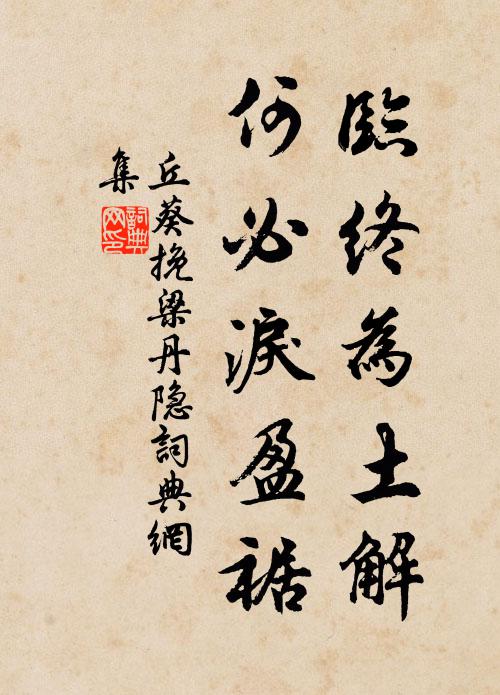 臨終為土解
何必淚盈裾
丘葵挽梁丹隐詞典網
集
詞典網印